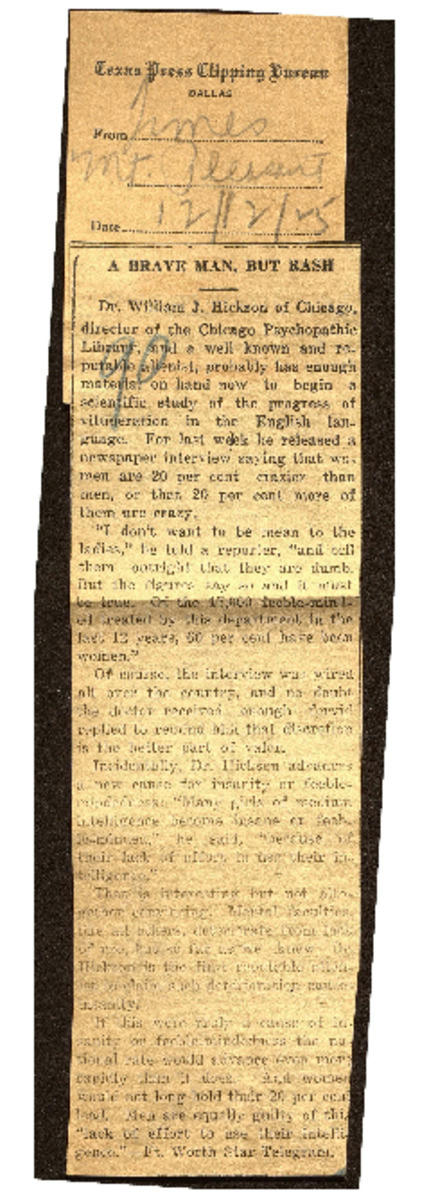 Texas Press Clipping Bureau
DALLAS
From Times
Mt. Pleasant
Date 12/12/25
A BRAVE MAN, BUT RASH
Dr. William J. Hickson of Chicago,
director of the Chicago Psychopathic
Library, and a well known and re-
putable alienist, probably has enough
material on hand now to begin a
scientific study of the progress of
vituperation in the English lan-
guage. For last week he released a
newspaper interview saying that wo-
men are 20 per cent crazier than
men, or that 20 per cent more of
them are crazy.
"I don't want to be mean to the
ladies," he told a reporter, "and tell
them outright that they are dumb.
But the figures say so and it must
be true. Of the feeble-mind-
ed treated by this department in the
last 12 years, 60 per cent have been
women."
Of course, the interview was wired
all over the country, and no doubt
the doctor received enough
replies to remind him that discretion
is the better part of valor.
Incidentally, Dr. Hickson advances
a new cause for insanity or feeble-
mindedness: "Many girls of medium
intelligence become insane or feeb-
le-minded," he said, "because of
their lack of effort to use their in-
telligence."
That is interesting but not alto-
gether convincing. Mental faculties,
like all others, deteriorate from lack
of use, but so far as we know Dr.
Hickson is the first reputable alien-
ist such deterioration
insanity.
If this were truly a cause of in-
sanity or feeble-mindedness the na-
tional rate would advance even more
rapidly than it does. And women
would not long hold their 20 per cent
lead. Men are equally guilty of this
"lack of effort to use their intelli-
gence." Ft. Worth Star Telegram.